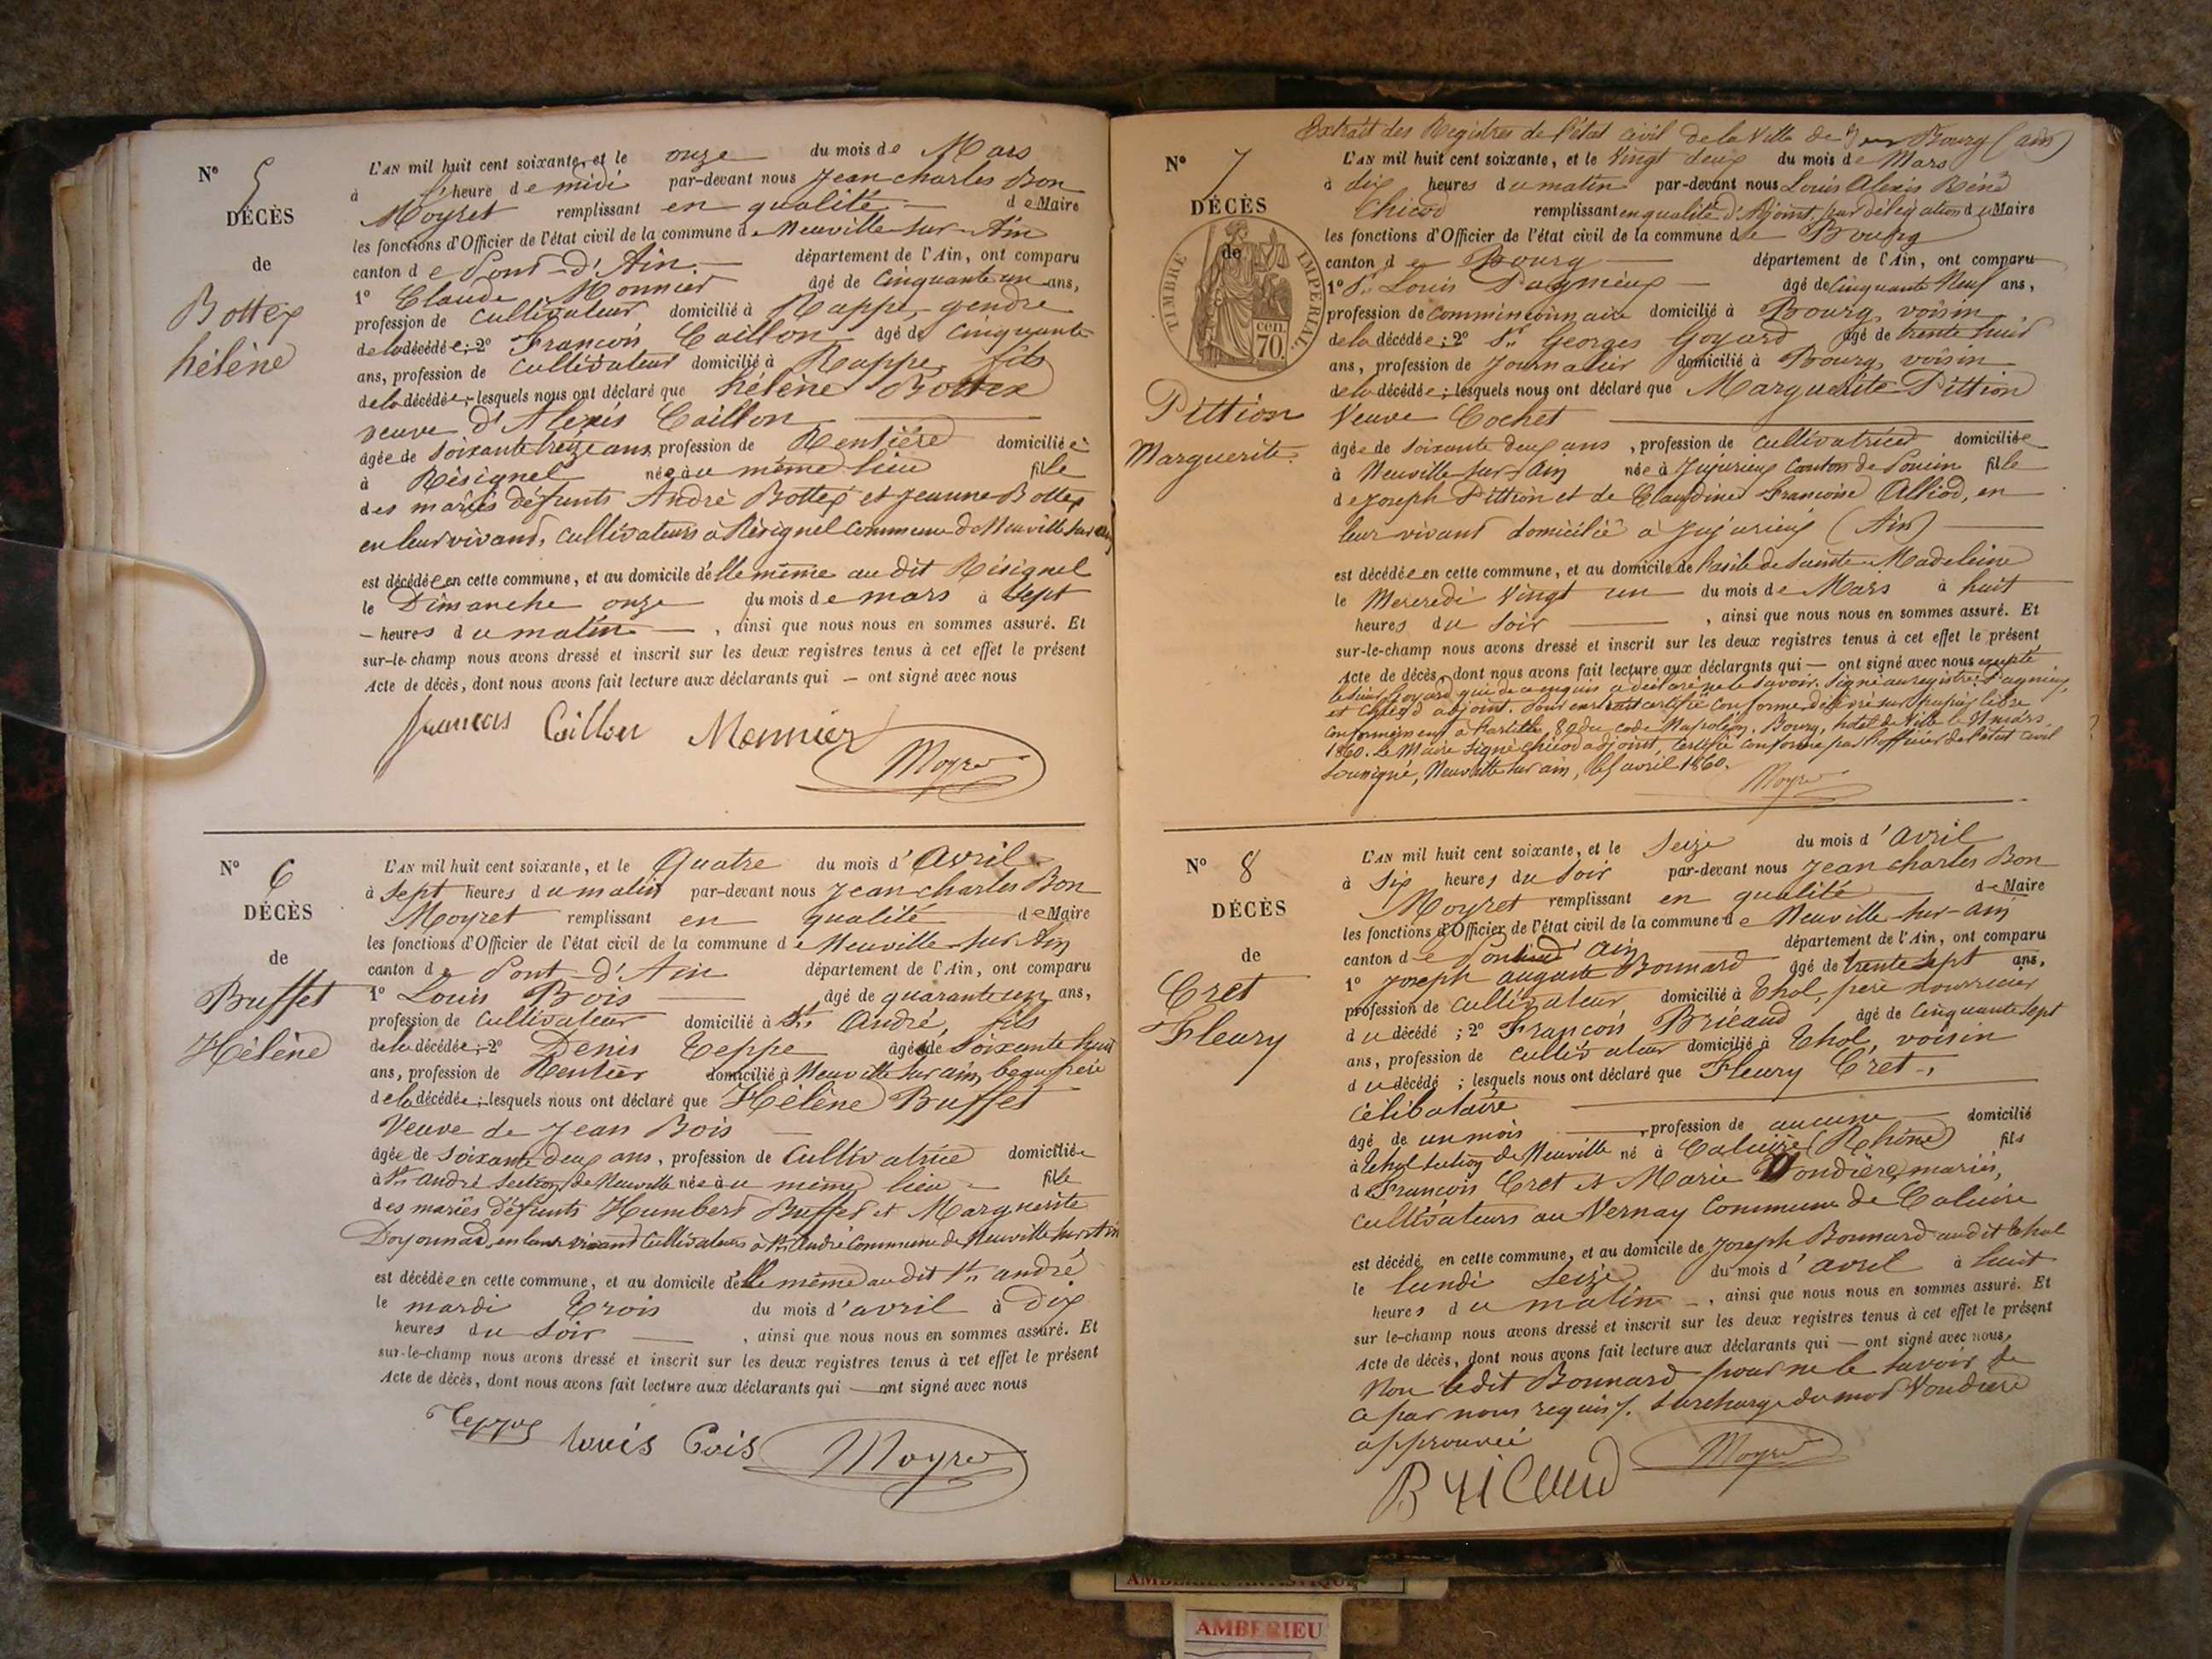 N° 5
DÉCÈS
de
Bottex
hélène
L'AN mil huit cent soixante, et le onze du mois de Mars
à l'heure de midi par-devant nous Jean charles Bon
Moyret remplissant en qualité de Maire
les fonctions d'Officier de l'état civil de la commune de Neuville sur Ain
canton de Pont-d'Ain département de l'Ain, ont comparu
1° Claude Monnier âgé de Cinquante un ans,
profession de cultivateur domicilié à Rappe, gendre
de la décédée; 2° François Caillon âgé de cinquante
ans, profession de cultivateur domicilié à Rappe, fils
de la décédée; lesquels nous ont déclaré que hélène Bottex
veuve d'Alexis Caillon
âgée de soixante treize ans, profession de Rentière domiciliée
à Résignel née au même lieu fille
des mariés défunts André Bottex et Jeanne Bottex
en leur vivant, cultivateurs à Résignel commune de Neuville sur Ain
est décédée en cette commune, et au domicile d'elle même au dit Résignel
le Dimanche onze du mois de mars à sept
heures du matin, ainsi que nous nous en sommes assuré. Et
sur-le-champ nous avons dressé et inscrit sur les deux registres tenus à cet effet le présent
Acte de décès, dont nous avons fait lecture aux déclarants qui — ont signé avec nous
francois Caillon Monnier
Moyret
N° 6
DÉCÈS
de
Buffet
Hélène
L'AN mil huit cent soixante, et le Quatre du mois d'Avril
à sept heures du matin par-devant nous Jean charles Bon
Moyret remplissant en qualité de Maire
les fonctions d'Officier de l'état civil de la commune de Neuville sur Ain
canton de Pont-d'Ain département de l'Ain, ont comparu
1° Louis Bois âgé de quarante un ans,
profession de cultivateur domicilié à St André, fils
de la décédée; 2° Denis Teppe âgé de soixante huit
ans, profession de Rentier domicilié à Neuville sur ain, beau frère
de la décédée; lesquels nous ont déclaré que Hélène Buffet
Veuve de Jean Bois
âgée de soixante deux ans, profession de Cultivatrice domiciliée
à St André section de Neuville née au même lieu fille
des mariés défunts Humbert Buffet et Marguerite
Doyonnad, en leur vivant cultivateurs à St André commune de Neuville sur Ain
est décédée en cette commune, et au domicile d'elle même au dit St andré
le mardi trois du mois d'avril à dix
heures du soir, ainsi que nous nous en sommes assuré. Et
sur-le-champ nous avons dressé et inscrit sur les deux registres tenus à cet effet le présent
Acte de décès, dont nous avons fait lecture aux déclarants qui — ont signé avec nous
Teppe Louis Bois Moyret
Extrait des Registres de l'état civil de la Ville de Bourg (ain)
N° 7
DÉCÈS
de
TIMBRE IMPERIAL
70 cen
Pittion
Marguerite
L'AN mil huit cent soixante, et le Vingt deux du mois de Mars
à dix heures du matin par-devant nous Louis Alexis Réné
Chicod remplissant en qualité d'Adjoint par délégation du Maire
les fonctions d'Officier de l'état civil de la commune de Bourg
canton de Bourg département de l'Ain, ont comparu
1° Sr Louis Pagnieux âgé de Cinquante Neuf ans,
profession de commissionnaire domicilié à Bourg, voisin
de la décédée; 2° Sr Georges Goyard âgé de trente huit
ans, profession de Journalier domicilié à Bourg, voisin
de la décédée; lesquels nous ont déclaré que Marguerite Pittion
Veuve Cochet
âgée de soixante deux ans, profession de cultivatrice domiciliée
à Neuville sur Ain née à Jujurieux Canton de Poncin fille
de Joseph Pittion et de Claudine Françoise Alliod, en
leur vivant domicilié à Jujurieux (Ain)
est décédée en cette commune, et au domicile de l'asile de Sainte Madeleine
le Mercredi Vingt un du mois de Mars à huit
heures du Soir, ainsi que nous nous en sommes assuré. Et
sur-le-champ nous avons dressé et inscrit sur les deux registres tenus à cet effet le présent
Acte de décès, dont nous avons fait lecture aux déclarants qui — ont signé avec nous excepté
le sieur Goyard qui de ce enquis a déclaré ne le savoir. Signé au registre: Pagnieux,
et Chicod adjoint. Pour extrait certifié conforme délivré sur papier libre
conformément à l'article 80 du code Napoléon, Bourg, hôtel de Ville le mars
1860. Le Maire signé Chicod adjoint, certifié conforme par l'officier de l'état civil
soussigné, Neuville sur ain, le avril 1860.
Moyret
N° 8
DÉCÈS
de
Cret
Fleury
L'AN mil huit cent soixante, et le Seize du mois d'avril
à Six heures du soir par-devant nous Jean charles Bon
Moyret remplissant en qualité de Maire
les fonctions d'Officier de l'état civil de la commune de Neuville sur-ain
canton de Pont d'Ain département de l'Ain, ont comparu
1° Joseph auguste Bonnard âgé de trente sept ans,
profession de cultivateur domicilié à Thol, père nourricier
du décédé; 2° François Bricaud âgé de Cinquante sept
ans, profession de cultivateur domicilié à Thol, voisin
du décédé; lesquels nous ont déclaré que Fleury Cret,
célibataire
âgé de un mois, profession de aucune domicilié
à Thol section de Neuville né à Caluire (Rhône) fils
de François Cret et Marie Vondière, mariés,
cultivateurs au Vernay Commune de Caluire
est décédé en cette commune, et au domicile de Joseph Bonnard au dit Thol
le lundi seize du mois d'avril à huit
heures du matin, ainsi que nous nous en sommes assuré. Et
sur le-champ nous avons dressé et inscrit sur les deux registres tenus à cet effet le présent
Acte de décès, dont nous avons fait lecture aux déclarants qui — ont signé avec nous,
Non ledit Bonnard pour ne le savoir de
ce par nous requis. surcharge du mot Vondière
approuvée
Moyret
Bricaud
AMBERIEU ARTISTIQUE
AMBERIEU